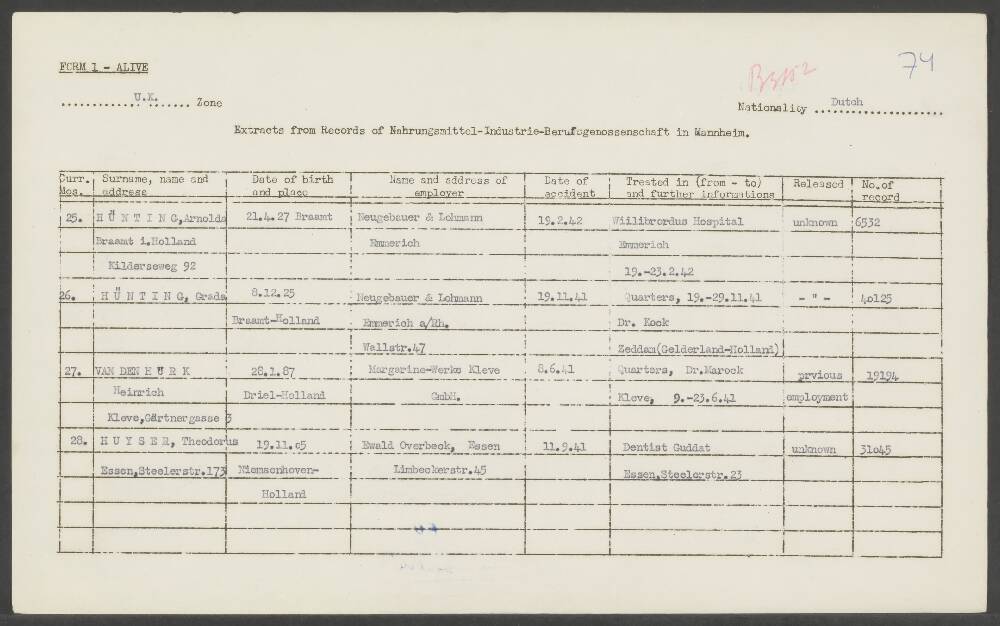 FORM 1 - ALIVE
74
U.K. Zone
Nationality Dutch
Extracts from Records of Nahrungsmittel-Industrie-Berufsgenossenschaft in Mannheim.
Curr. Nos. | Surname, name and address | Date of birth and place | Name and address of employer | Date of accident | Treated in (from - to) and further informations | Released | No.of record
25. H Ü N T I N G,Arnolda 21.4.27 Braamt Neugebauer & Lohmann 19.2.42 Willibrordus Hospital unknown 6532
Braamt i.Holland Emmerich Emmerich
Kilderseweg 92 19.-23.2.42
26. H Ü N T I N G, Grada 8.12.25 Neugebauer & Lohmann 19.11.41 Quarters, 19.-29.11.41 - " - 4o125
Braamt-Holland Emmerich a/Rh. Dr. Kock
Wallstr.47 Zeddam(Gelderland-Holland)
27. VAN DEN H U R K 28.1.87 Margarine-Werke Kleve 8.6.41 Quarters, Dr.Marock prvious 19194
Heinrich Driel-Holland GmbH. Kleve, 9.-23.6.41 employment
Kleve,Gärtnergasse 3
28. H U Y S E R, Theodorus 19.11.o5 Ewald Overbeck, Essen 11.9.41 Dentist Guddat unknown 31o45
Essen,Steelerstr.173 Niemsenhoven- Limbeckerstr.45 Essen,Steelerstr.23
Holland